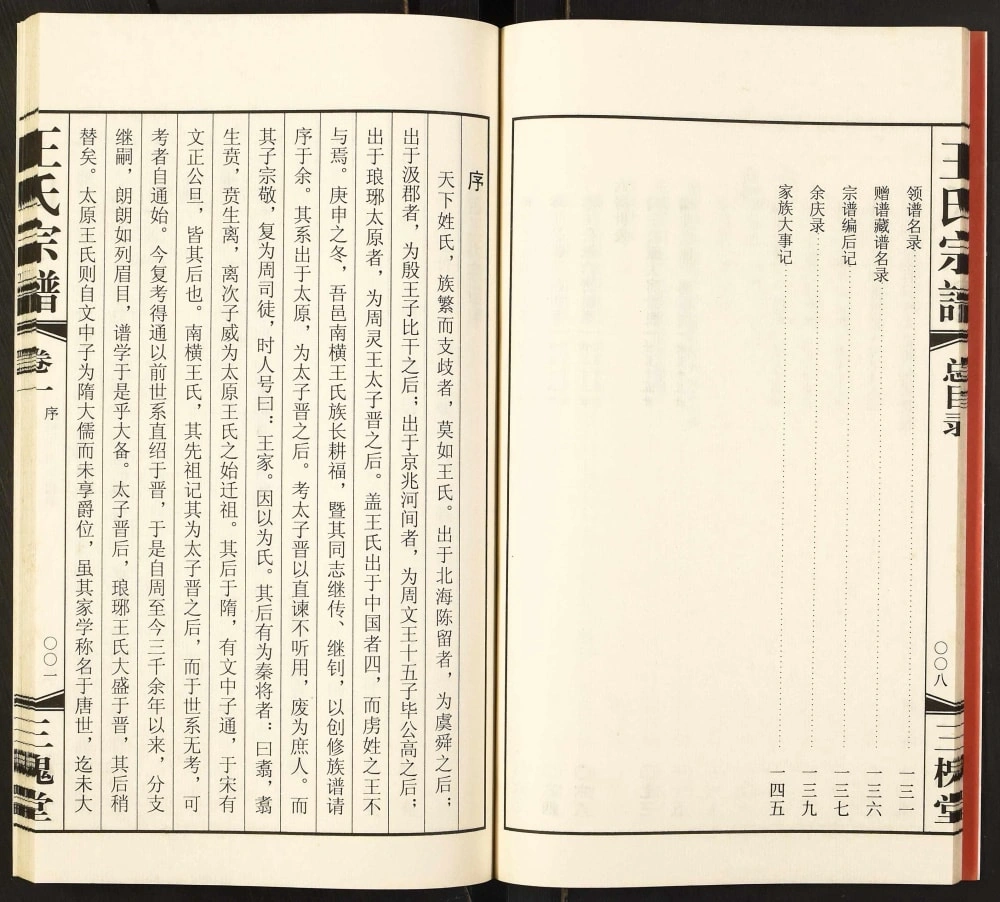 王氏宗谱
总目录
〇〇八
三槐堂
领谱名录……一三一
赠谱藏谱名录……一三六
宗谱编后记……一三七
余庆录……一三九
家族大事记……一四五
序
天下姓氏，族繁而支歧者，莫如王氏。出于北海陈留者，为虞舜之后；
出于汲郡者，为殷王子比干之后；出于京兆河间者，为周文王十五子毕公高之后；
出于琅琊太原者，为周灵王太子晋之后。盖王氏出于中国者四，而虏姓之王不
与焉。庚申之冬，吾邑南横王氏族长耕福，暨其同志继传、继钊，以创修族谱请
序于余。其系出于太原，为太子晋之后。考太子晋以直谏不听用，废为庶人。而
其子宗敬，复为周司徒，时人号曰：王家。因以为氏。其后有为秦将者：曰翦，翦
生贲，贲生离，离次子威为太原王氏之始迁祖。其后于隋，有文中子通，于宋有
文正公旦，皆其后也。南横王氏，其先祖记其为太子晋之后，而于世系无考，可
考者自通始。今复考得通以前世系直绍于晋，于是自周至今三千余年以来，分支
继嗣，朗朗如列眉目，谱学于是乎大备。太子晋后，琅琊王氏大盛于晋，其后稍
替矣。太原王氏则自文中子为隋大儒而未享爵位，虽其家学称名于唐世，迄未大
王氏宗谱
卷一
序
〇〇一
三槐堂